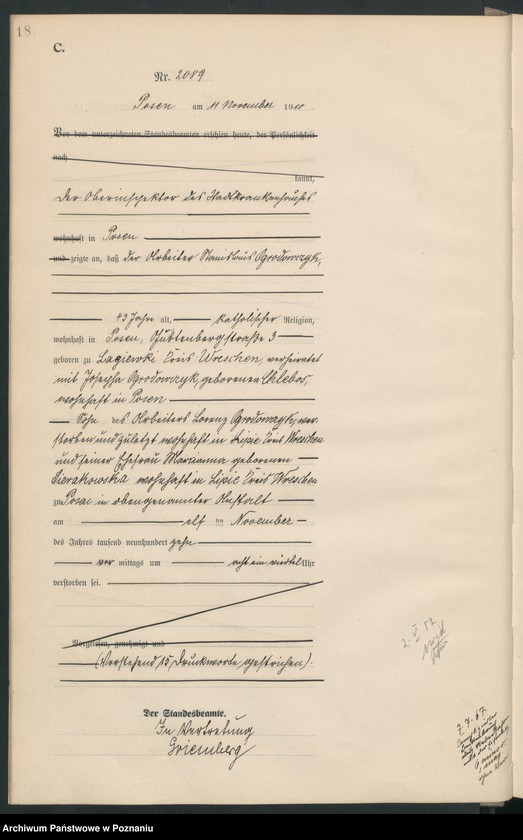 18
C.
Nr. 2089
Posen am 11 November 1910
Vor dem unterzeichneten Standesbeamten erschien heute, der Persönlichkeit
nach
kannt,
der Oberinspektor des Stadtkrankenhauses
wohnhaft in Posen
und zeigte an, daß der Arbeiter Stanislaus Ogrodowczyk,
43 Jahre alt, katholischer Religion,
wohnhaft in Posen, 3
geboren zu Lagiewki Kreis Wreschen, verheiratet
mit Josepha Ogrodowczyk, geborenen Chlebos,
wohnhaft in Posen
Sohn des Arbeiters Lorenz Ogrodowczyk, ver-
storben und zuletzt wohnhaft in Lipie Kreis Wreschen
und seiner Ehefrau Marianna geborenen
Sierakowska wohnhaft in Lipie Kreis Wreschen
zu Posen in obengenannter Anstalt
am elf ten November
des Jahres tausend neunhundert zehn
vor mittags um acht ein viertel Uhr
verstorben sei.
Vorgelesen, genehmigt und
(Vorstehend 15 Druckworte gestrichen).
Der Standesbeamte.
In Vertretung
Griemberg
7.7.67.
Archiwum Państwowe w Poznaniu